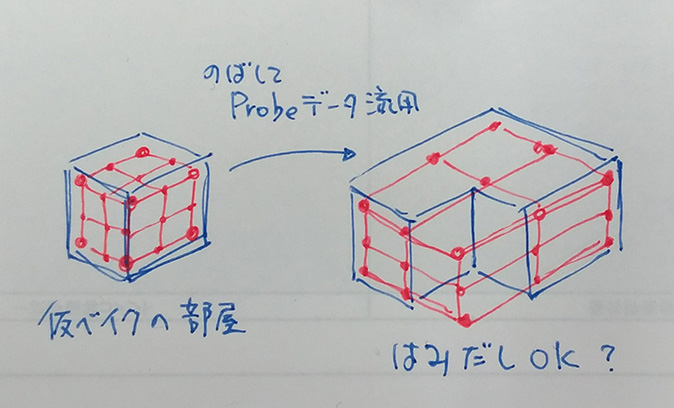 のばして
Probeデータ流用
仮ベイクの部屋
はみだしOK?